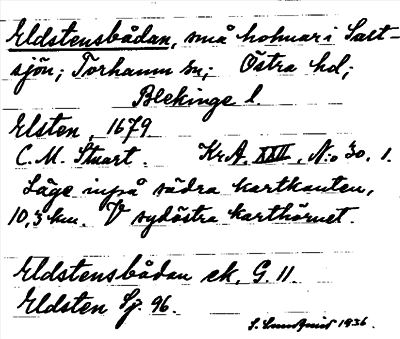 Eldstensbådan, små holmar i Salt-
sjön; Torhamn sn; Östra hd;
Blekinge l.
Elsten, 1679
C. M. Stuart. KrA. XXII, N:o 30, 1.
Läge inpå södra kartkanten,
10,3 km. V sydöstra karthörnet.
Eldstensbådan ek. G. 11.
Eldsten Sj. 96.
S. Lundqvist 1936.